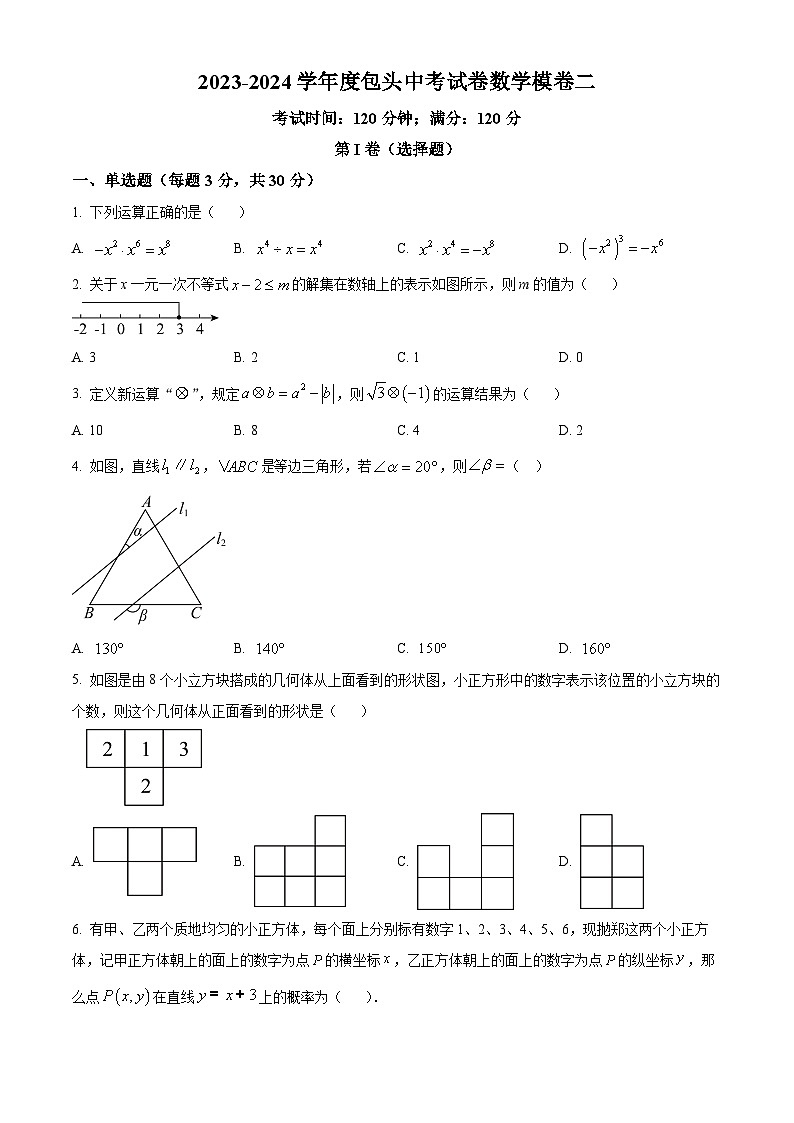 2023-2024 学年度包头中考试卷数学模卷二
考试时间：120 分钟；满分：120 分
第 I 卷（选择题）
一、单选题（每题 3 分，共 30 分）
1. 下列运算正确的是（ ）
A. −x²·x⁶=x⁸ B. x⁴÷x=x⁴ C. x²·x⁴=−x⁸ D. (−x²)³=−x⁶
2. 关于 x 一元一次不等式 x−2≤m 的解集在数轴上的表示如图所示，则 m 的值为（ ）
-2 -1 0 1 2 3 4
A. 3 B. 2 C. 1 D. 0
3. 定义新运算“⊗”，规定 a⊗b=a²−|b|，则 √3⊗(−1) 的运算结果为（ ）
A. 10 B. 8 C. 4 D. 2
4. 如图，直线 l₁∥l₂，VABC 是等边三角形，若∠α=20°，则∠β=（ ）
A
l₁
α
l₂
B β C
A. 130° B. 140° C. 150° D. 160°
5. 如图是由 8 个小立方块搭成的几何体从上面看到的形状图，小正方形中的数字表示该位置的小立方块的
个数，则这个几何体从正面看到的形状是（ ）
2 1 3
2
A. B. C. D.
6. 有甲、乙两个质地均匀的小正方体，每个面上分别标有数字 1、2、3、4、5、6，现抛郑这两个小正方
体，记甲正方体朝上的面上的数字为点 P 的横坐标 x，乙正方体朝上的面上的数字为点 P 的纵坐标 y，那
么点 P(x,y) 在直线 y= x+3 上的概率为（ ）.